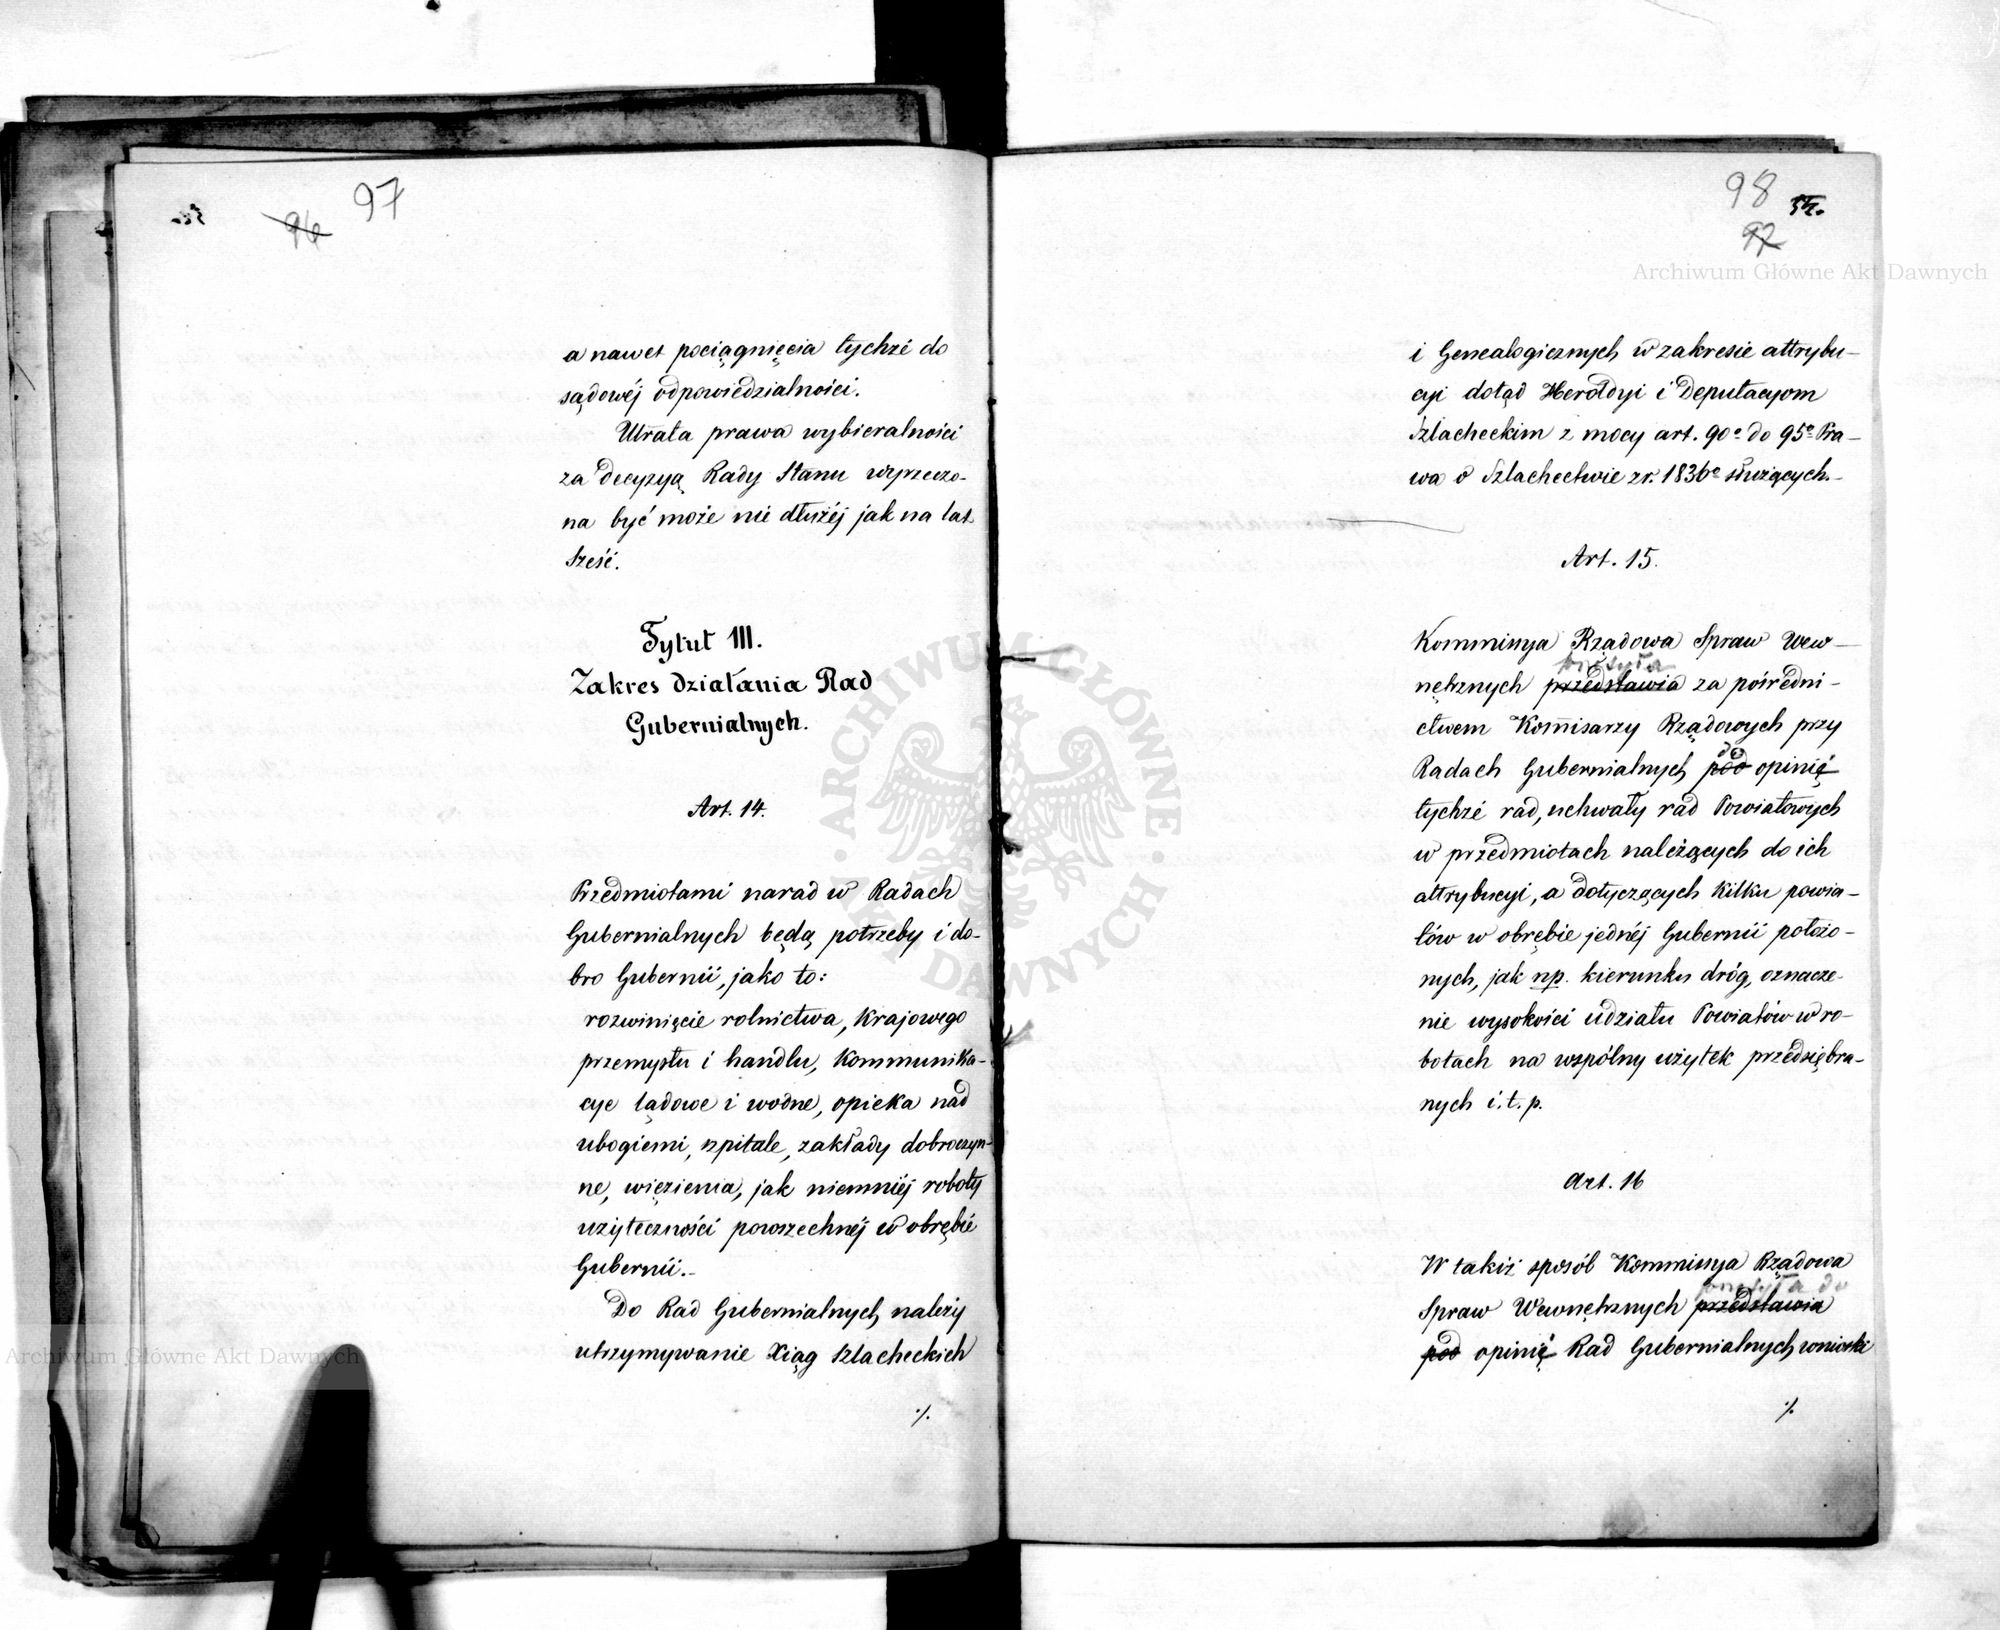 96 97
a nawet pociągnięcia tychże do
sądowéj odpowiedzialności.
Utrata prawa wybieralności
za decyzyą Rady Stanu wyrzeczo-
na być może nie dłużéj jak na lat
sześć.
Tytuł III.
Zakres działania Rad
Gubernialnych.
Art. 14.
Przedmiotami narad w Radach
Gubernialnych będą potrzeby i do-
bro Gubernii, jako to:
rozwinięcie rolnictwa, krajowego
przemysłu i handlu, kommunika-
cye lądowe i wodne, opieka nad
ubogiemi, szpitale, zakłady dobroczyn-
ne, więzienia, jak niemniéj roboty
użyteczności powszechnéj w obrębie
Gubernii.-
Do Rad Gubernialnych należy
utrzymywanie Xiąg Szlacheckich
./.
98
97
i Genealogicznych w zakresie attrybu-
cyi dotąd Heroldyi i Deputacyom
Szlacheckim z mocy art. 90º do 95º Pra-
wa o Szlachectwie z r. 1836º służących.-
Art. 15.
Kommissya Rządowa Spraw Wew-
posyła
nętrznych przedstawia za pośredni-
ctwem Kommisarzy Rządowych przy
do
Radach Gubernialnych pod opinię
tychże rad, uchwały rad Powiatowych
w przedmiotach należących do ich
attrybucyi, a dotyczących kilku powia-
tów w obrębie jednéj Gubernii położo-
nych, jak np. kierunku dróg, oznacze-
nie wysokości udziału Powiatów w ro-
botach na wspólny użytek przedsiębra-
nych i.t.p.
Art. 16
W takiż sposób Kommissya Rządowa
posyła do
Spraw Wewnętrznych przedstawia
pod opinię Rad Gubernialnych wnioski
./.
Archiwum Główne Akt Dawnych
Archiwum Główne Akt Dawnych
ARCHIWUM GŁÓWNE
AKT DAWNYCH